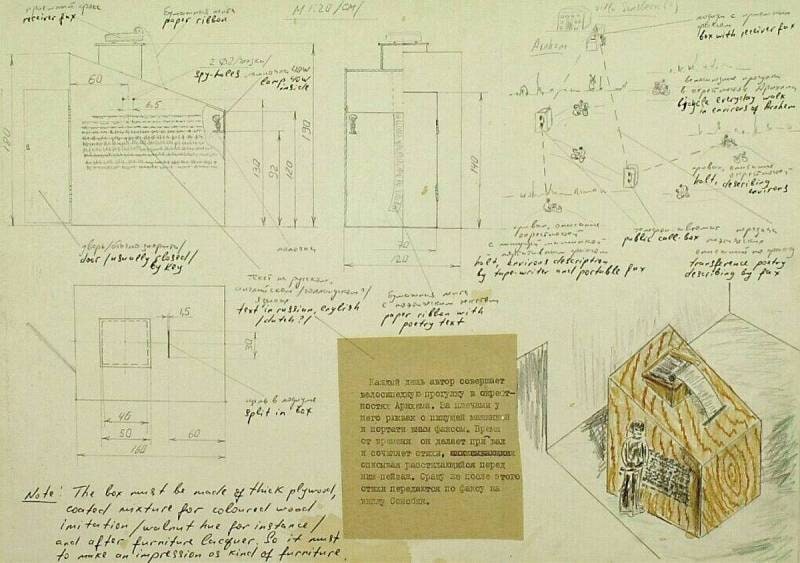 приёмный факс
receiver fax
бумажная лента
paper ribbon
M 1:20 /CM/
villa Sonsbeek
Arnhem
box with receiver fax
2 глазка
spy-holes
лампочка 40W
lamp 40W
inside
60
6,5
180
130
92
120
190
140
70
120
bicycle everyday walk
in environs of Arnhem
halt, describing
environs
дверь /обычно закрыта/
door /usually closed/
by key
public call-box
halt, environs description
by tape-writer and portable fax
transference poetry
describing by fax
текст на русском,
английском /голландском?/
языках
text in russian, english
/dutch?/
бумажная лента
с поэтическим текстом
paper ribbon with
poetry text
15
30
щель в корпусе
split in box
46
50
60
160
Каждый день автор совершает
велосипедную прогулку в окрест-
ностях Арнхема. За плечами у
него рюкзак с пишущей машинкой
и портативным факсом. Время
от времени он делает привал
и сочиняет стихи,
описывая расстилающийся перед
ним пейзаж. Сразу же после этого
стихи передаются по факсу на
виллу Сонсбик.
Note: The box must be made of thick plywood,
coated mixture for coloured wood
imitation /walnut hue for instance/
and after furniture lacquer. So it must
to make an impression as kind of furniture.